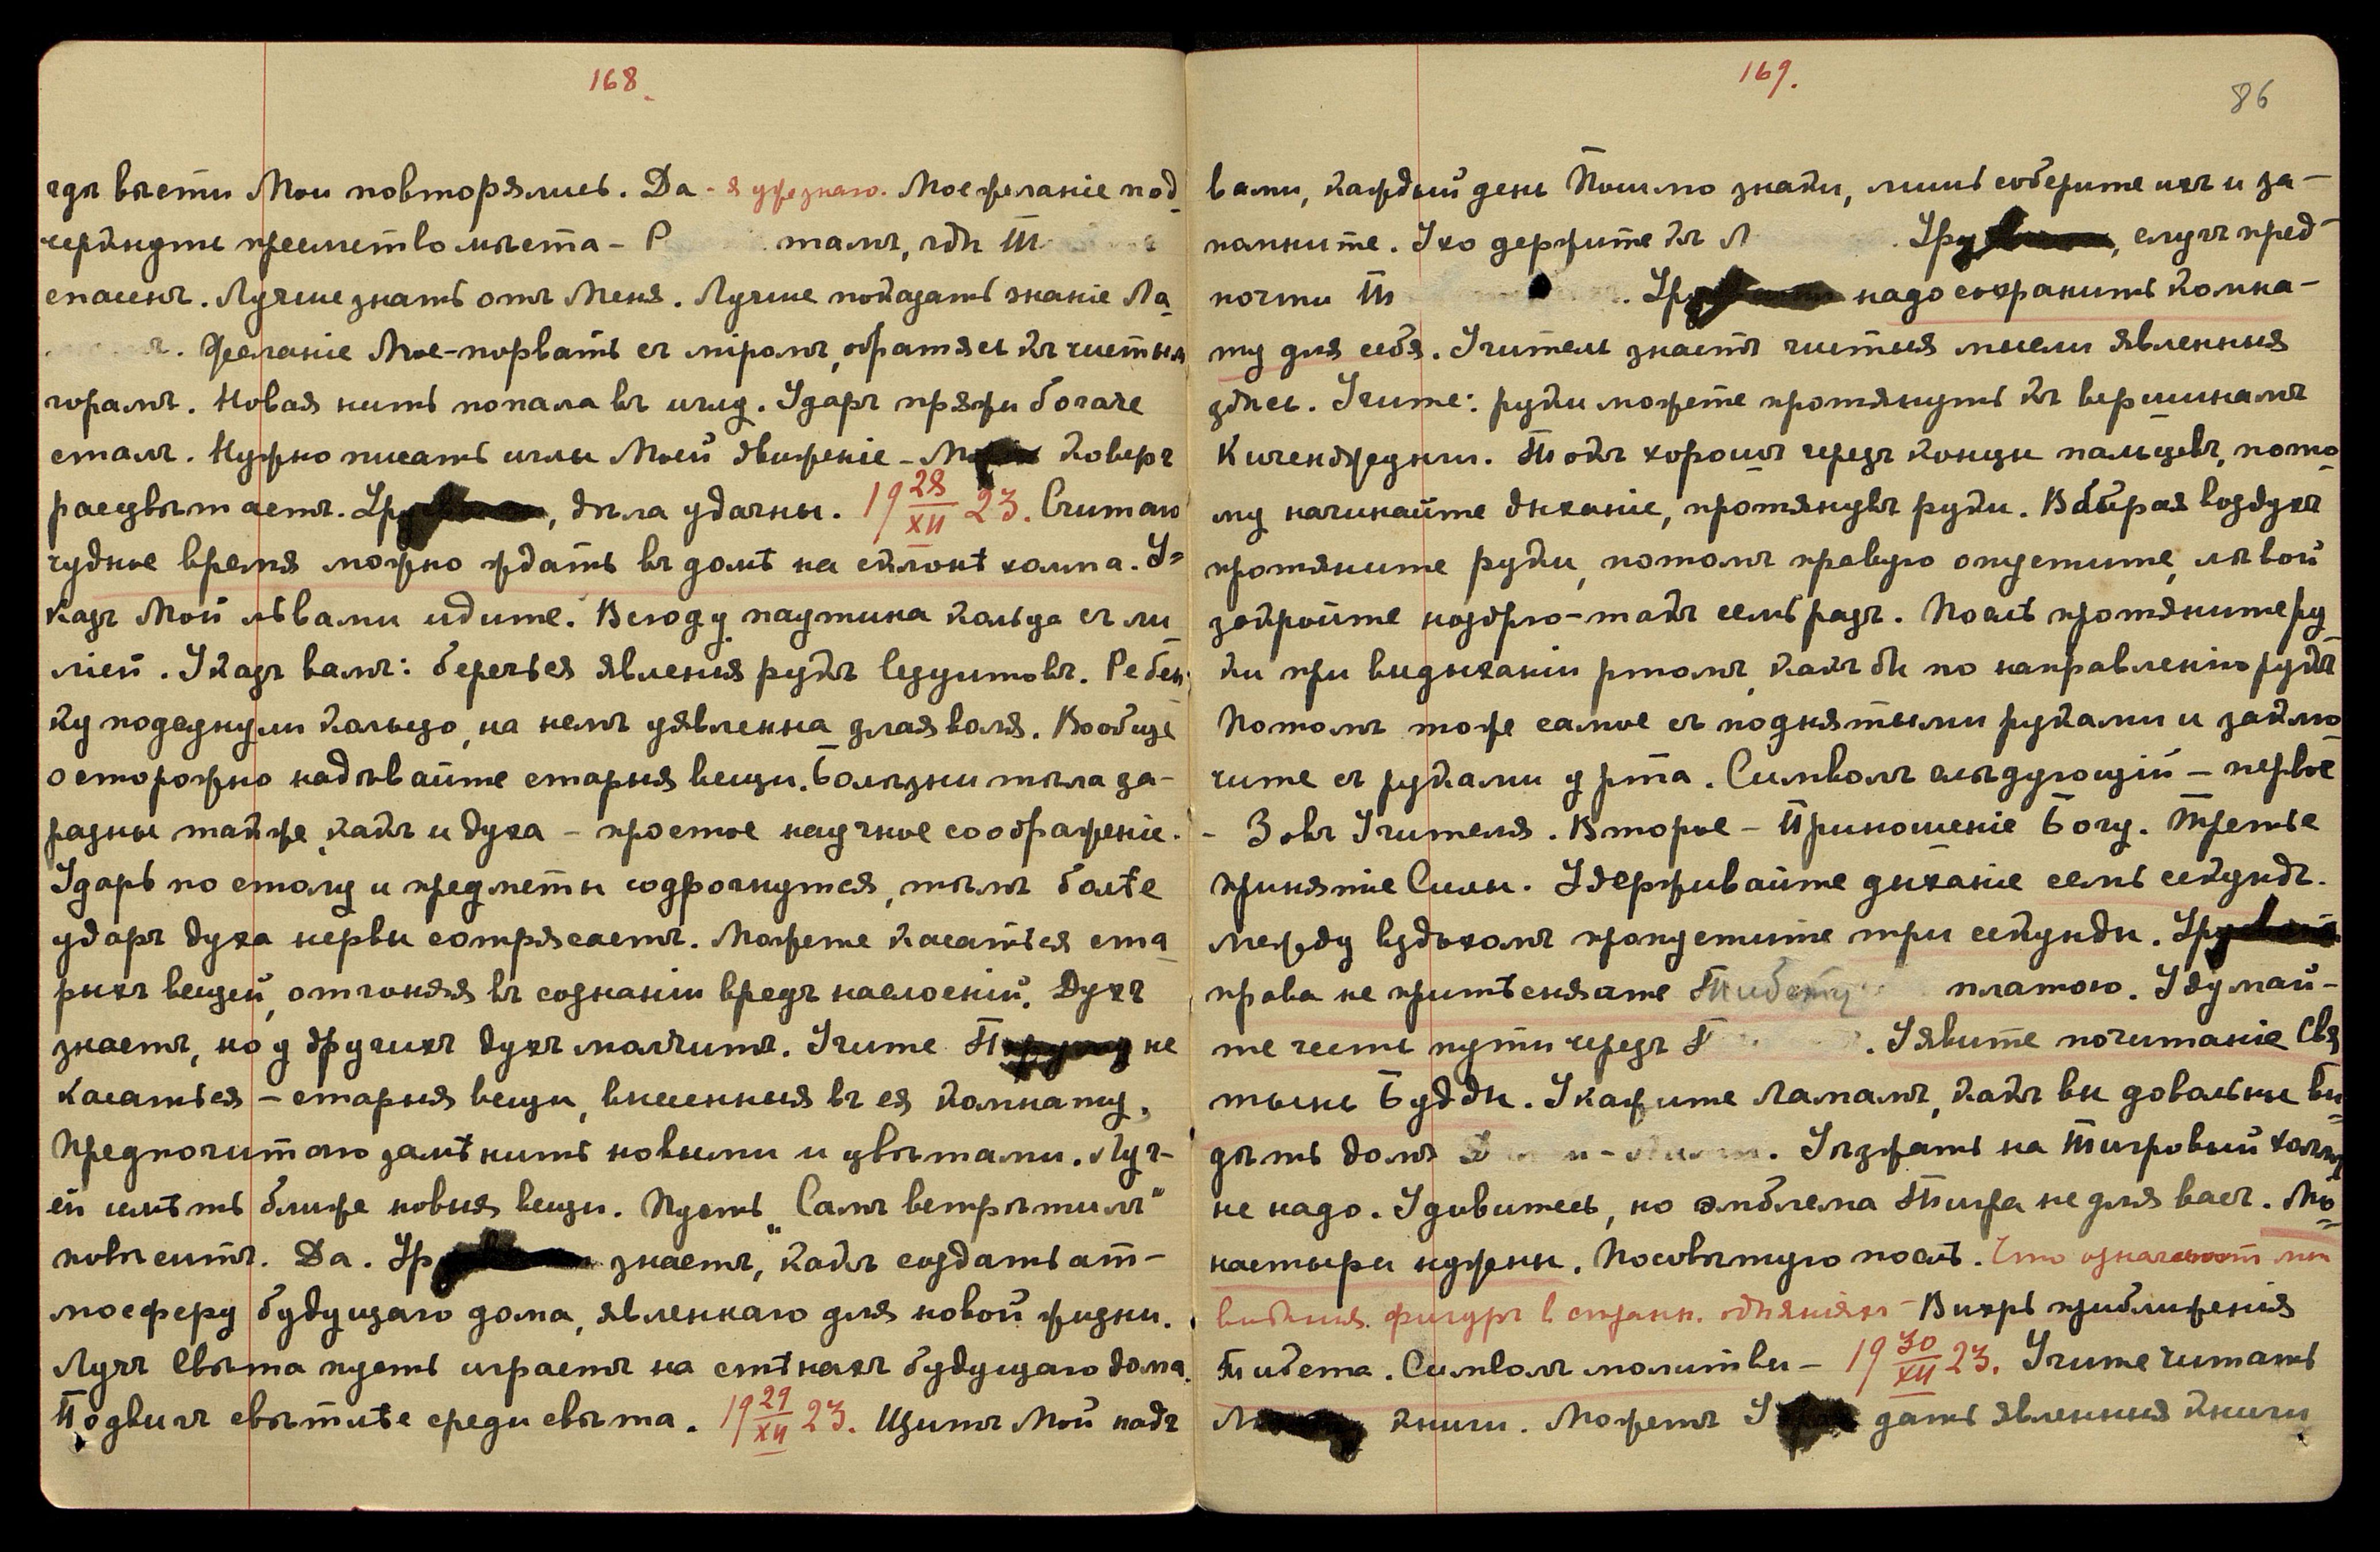 168.
гдѣ вѣсти Мои повторялись. Да - я уже знаю. Мое желаніе под-
черкнуть преемство мѣста - Р тамъ, гдѣ Т
спасенъ. Лучше знать отъ Меня. Лучше показать знаніе Ла-
Желаніе Мое - порвать съ міромъ, обратясь къ чистымъ
горамъ. Новая нить попала въ иглу. Ударъ пряжи богаче
сталъ. Нужно писать иглы Моей движеніе - коверъ
расцвѣтаетъ. дѣла удачны. 19 28/XII 23. Считаю
чудное время можно ждать въ домѣ на склонѣ холма. У-
казъ Мой львами идите. Всюду паутина кольца съ ли-
ліей. Указъ вамъ: беречься явленія рукъ Іезуитовъ. Ребен-
ку подсунули кольцо, на немъ уявленна злая воля. Вообще
осторожно надѣвайте старыя вещи. Болѣзни тѣла за-
разны также, какъ и духа - простое научное соображеніе.
Ударь по столу и предметы содрогнутся, тѣмъ болѣе
ударъ духа нервы сотрясаетъ. Можете касаться ста-
рыхъ вещей, отгоняя въ сознаніи вредъ наслоеній. Духъ
знаетъ, но у другихъ духъ молчитъ. Учите не
касаться - старыя вещи, внесенныя въ ея комнату.
Предпочитаю замѣнить новыми и цвѣтами. Луч-
ей имѣть ближе новыя вещи. Пусть „Самъ встрѣтилъ“
повѣситъ. Да. знаетъ, какъ создать ат-
мосферу будущаго дома, явленнаго для новой жизни.
Лучъ Свѣта пусть играетъ на стѣнахъ будущаго дома.
Подвигъ свѣтитъ среди свѣта. 19 29/XII 23. Щитъ Мой надъ
169.
86
вами, каждый день Пошлю знаки, лишь соберите ихъ и за-
помните. Ухо держите къ Л случъ пред-
почти Т надо сохранить комна-
ту для себя. Учитель знаетъ чистыя мысли явленныя
здѣсь. Учите: руки можете протянуть къ вершинамъ
Кинченджунги. Токъ хорошъ черезъ концы пальцевъ, пото-
му начинайте дыханіе, протянувъ руки. Вбирая воздухъ
протяните руки, потомъ правую опустите, лѣвой
закройте ноздрю - такъ семь разъ. Послѣ протяните ру-
ки при выдыханіи ртомъ, какъ бы по направленію рукъ
Потомъ тоже самое съ поднятыми руками и заклю-
чите съ руками у рта. Символъ слѣдующій - первое
- Зовъ Учителя. Второе - Приношеніе Богу. Третье
принятіе Силы. Удерживайте дыханіе семь секундъ.
между вздохомъ пропустите три секунды.
права не притѣсняйте Тибету платою. Удумай-
те честь пути черезъ . Уявите почитаніе Свя-
тынь Будды. Укажите Ламамъ, какъ вы довольны ви-
дѣть домъ . Уѣзжать на Тигровый холмъ
не надо. Удивитесь, но эмблема Тигра не для васъ. Мо-
настыри нужны. Посовѣтую послѣ. Что означают мы
видѣнія фигуръ в странн. одѣяніяхъ - Вихрь приближенія
Тибета. Символъ молитвы - 19 30/XII 23. Учите читать
книги. Можетъ дать явленныя книги